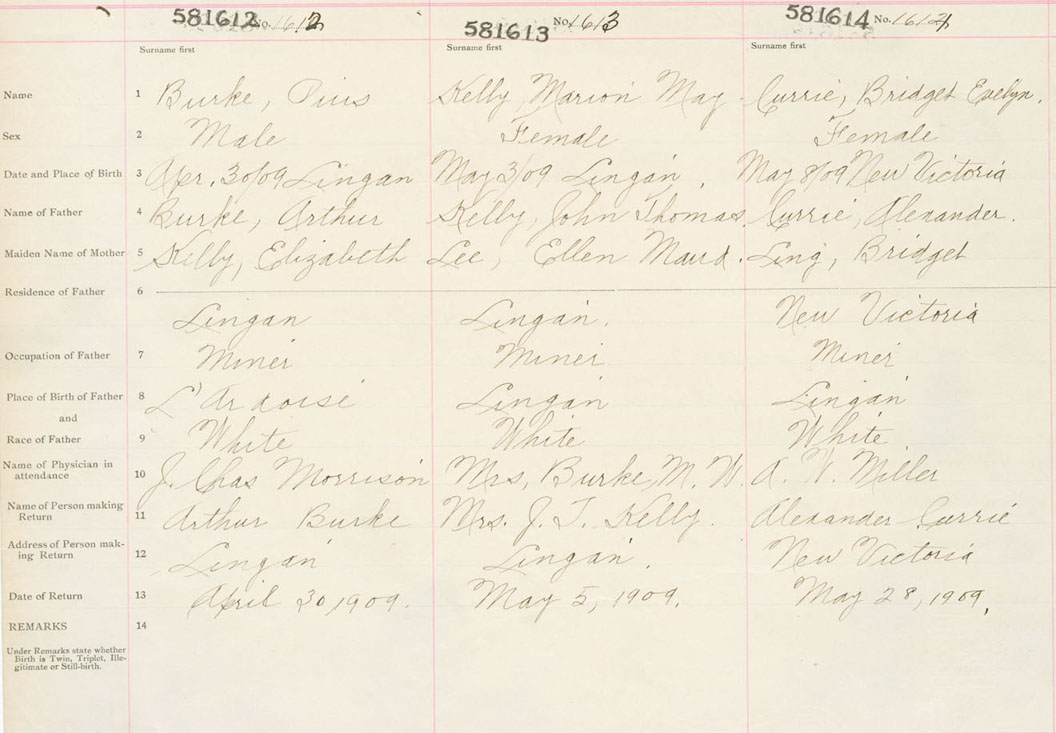 581612 No. 1612 581613 No. 1613 581614 No. 1614
Surname first Surname first Surname first
Name 1 Burke, Pius Kelly, Marion May Currie, Bridget Evelyn.
Sex 2 Male Female Female
Date and Place of Birth 3 Apr. 30/09 Lingan May 3/09 Lingan. May 8/09 New Victoria
Name of Father 4 Burke, Arthur Kelly, John Thomas. Currie, Alexander.
Maiden Name of Mother 5 Kelly, Elizabeth Lee, Ellen Maud. Ling, Bridget
Residence of Father 6
Lingan Lingan. New Victoria
Occupation of Father 7 Miner Miner Miner
Place of Birth of Father 8 L'Ardoise Lingan Lingan
and
Race of Father 9 White White White.
Name of Physician in
attendance 10 J. Chas Morrison Mrs, Burke, M. W. A. V. Miller
Name of Person making
Return 11 Arthur Burke Mrs. J. T. Kelly. Alexander Currie
Address of Person mak-
ing Return 12 Lingan Lingan. New Victoria
Date of Return 13 April 30, 1909. May 5, 1909. May 28, 1909.
REMARKS 14
Under Remarks state whether
Birth is Twin, Triplet, Ille-
gitimate or Still-birth.